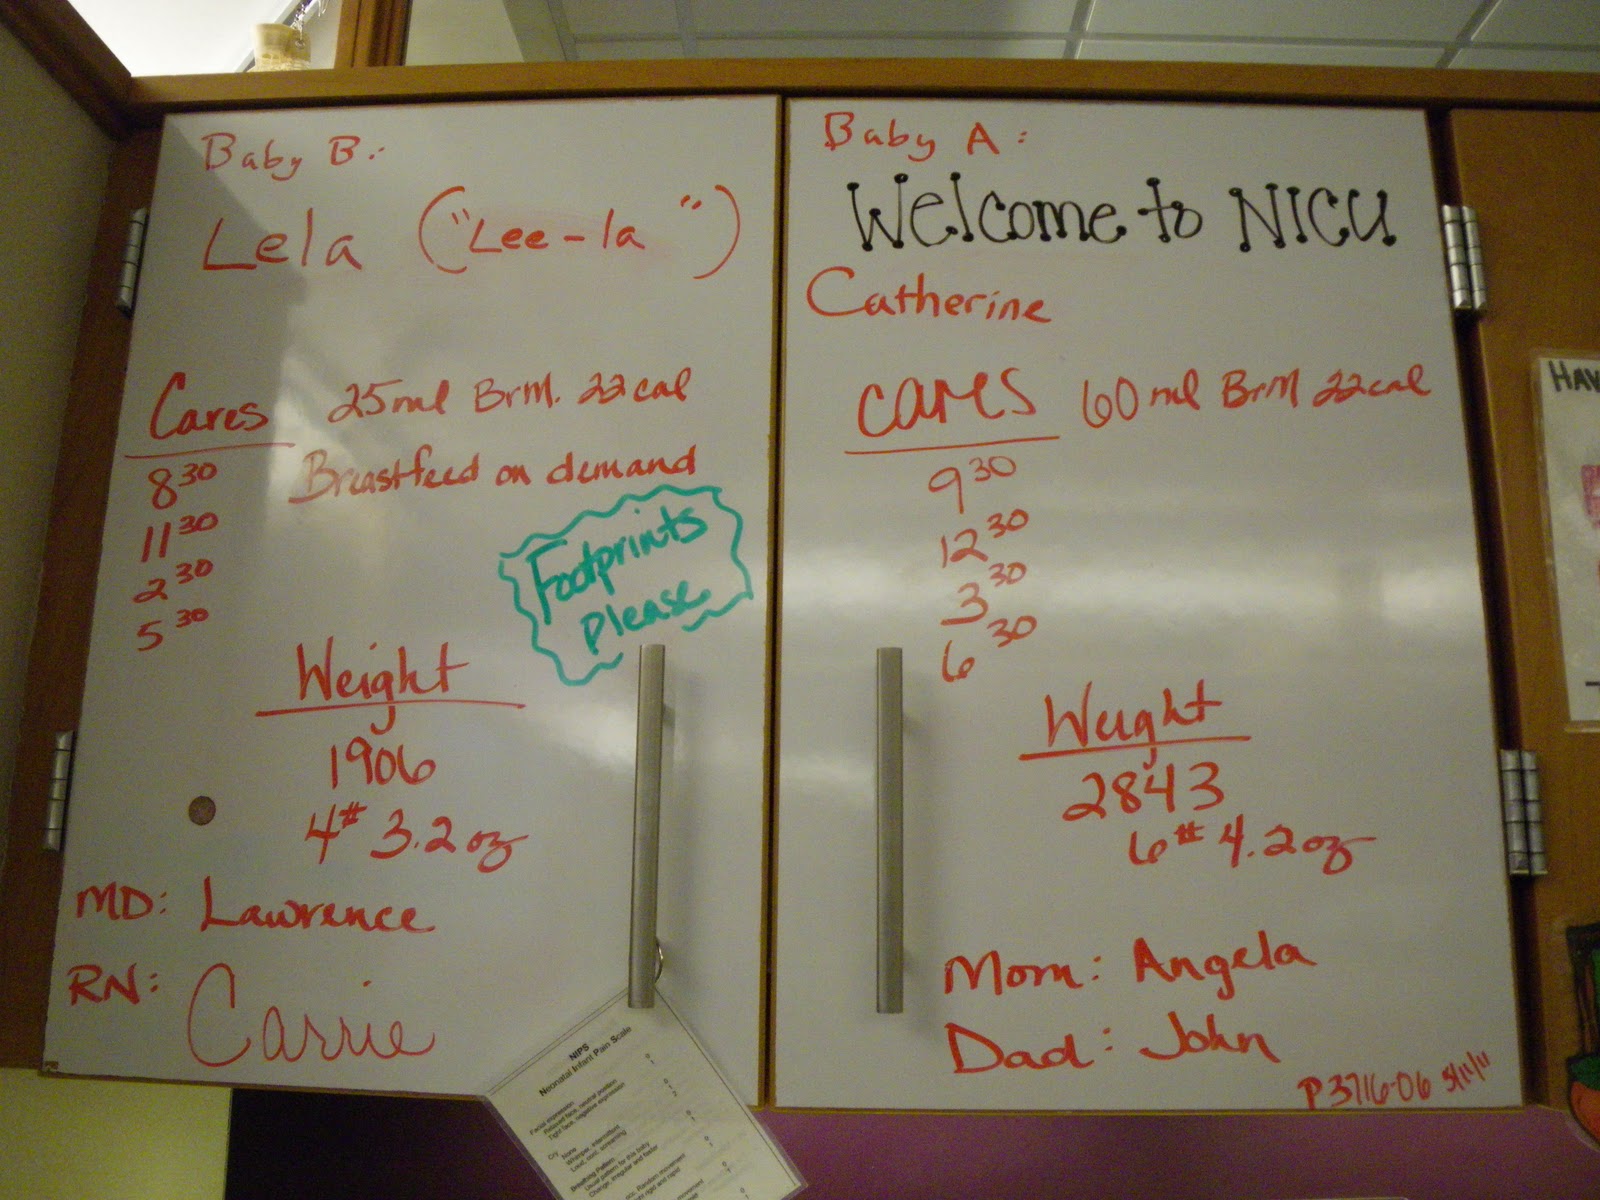 Baby B:
Lela ("Lee-la")
Cares 25ml BrM. 22cal
8³⁰ Breastfeed on demand
11³⁰
2³⁰
5³⁰
Footprints
please
Weight
1906
4# 3.2oz
MD: Lawrence
RN: Carrie
Baby A:
Welcome to NICU
Catherine
cares 60ml BrM 22cal
9³⁰
12³⁰
3³⁰
6³⁰
Weight
2843
6# 4.2oz
Mom: Angela
Dad: John
P3716-06 5/11/11
NIPS
Neonatal Infant Pain Scale
Facial expression
Relaxed face, neutral position 0
Tight face, negative expression 1
Cry
None 0
Whimper, intermittent 1
Loud, cont. screaming 2
Breathing Pattern
Usual pattern for this baby 0
Change, irregular and faster 1
HAV